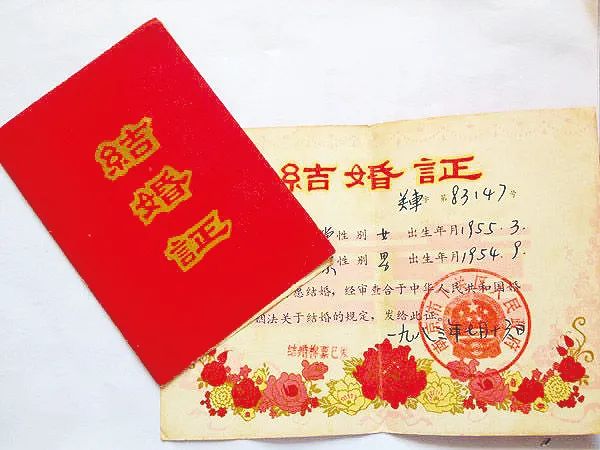 結婚証
結婚証
字第83147号
性别 女 出生年月1955.3.
性别 男 出生年月1954.9.
愿结婚，经审查合于中华人民共和国婚
姻法关于结婚的规定，发给此证。
一九八三年七月十六日